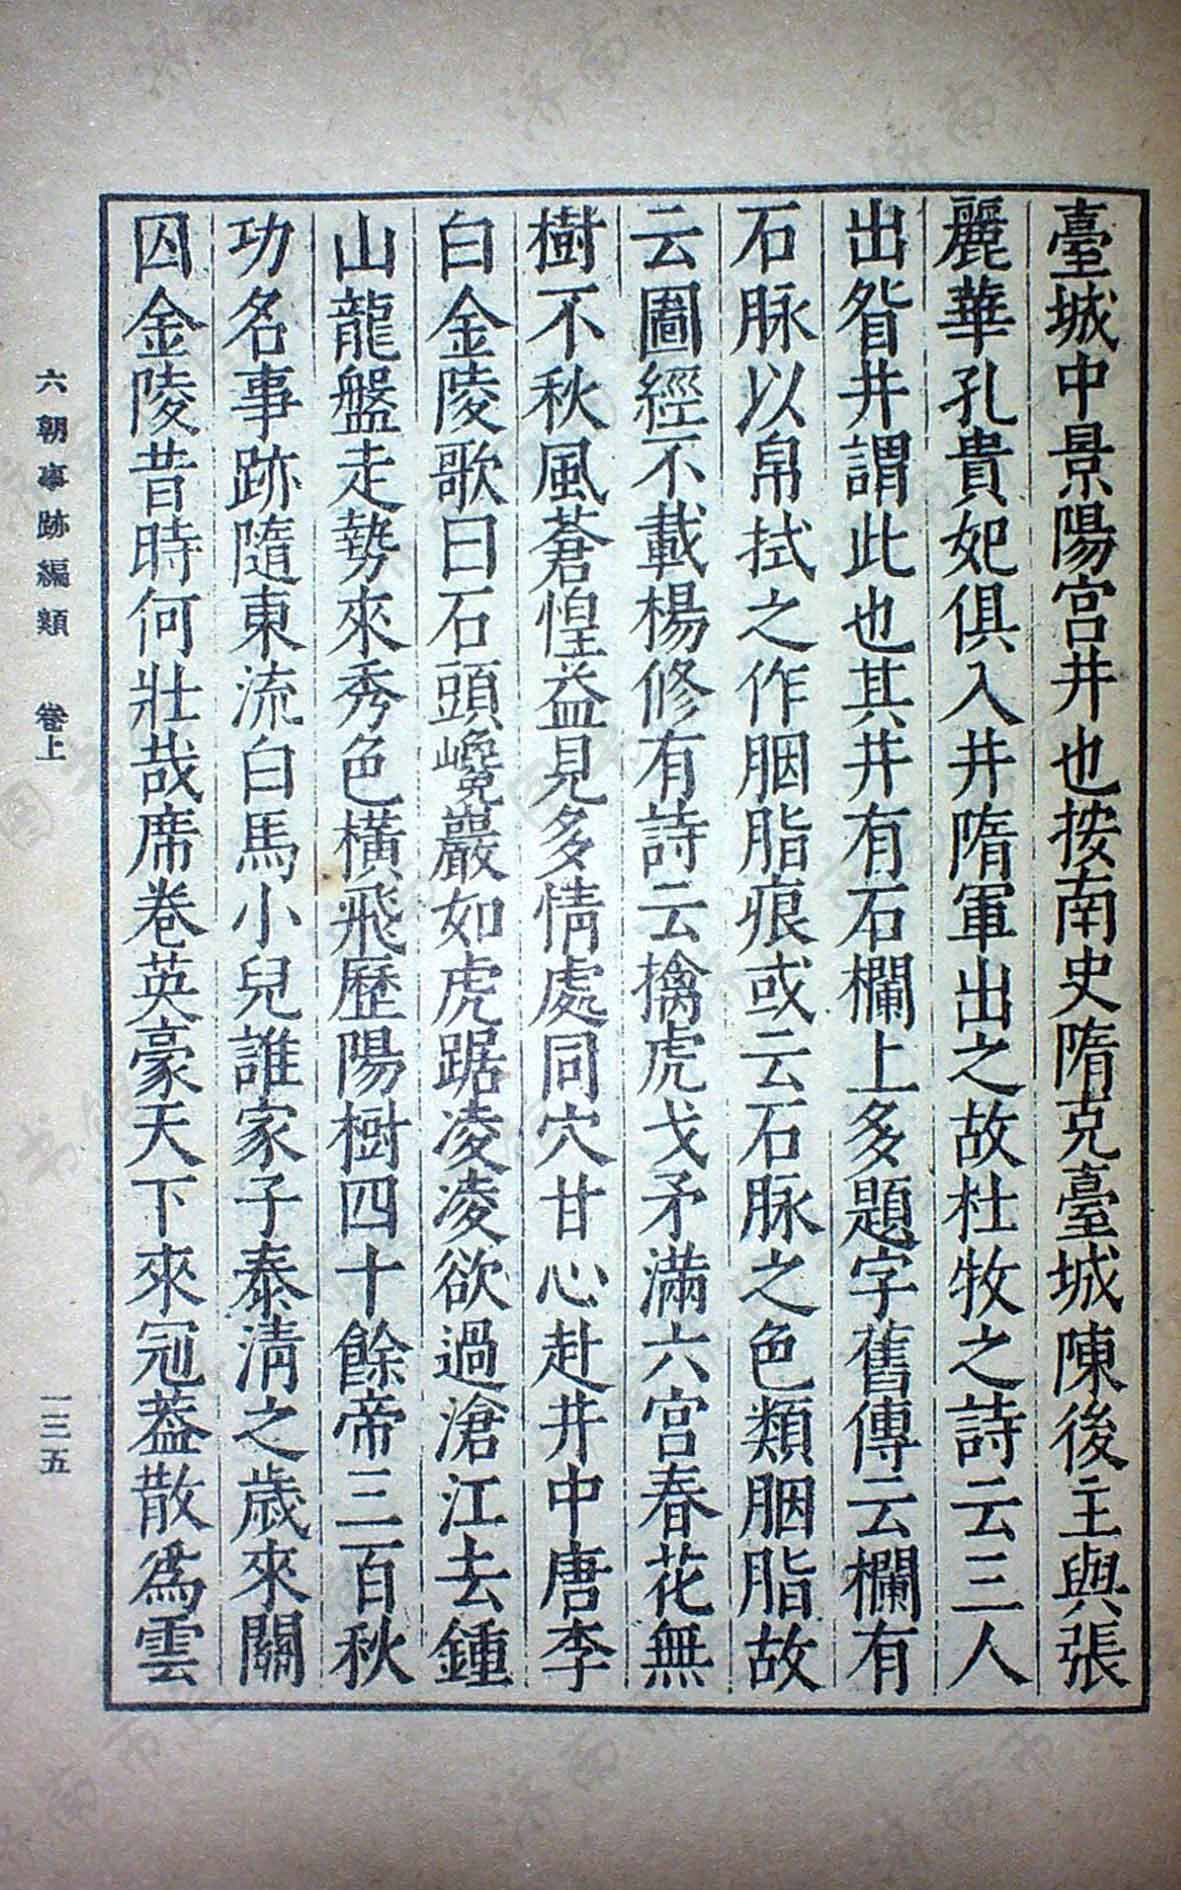 臺城中景陽宮井也按南史隋克臺城陳後主與張
麗華孔貴妃俱入井隋軍出之故杜牧之詩云三人
出眢井謂此也其井有石欄上多題字舊傳云欄有
石脉以帛拭之作胭脂痕或云石脉之色類胭脂故
云圖經不載楊修有詩云擒虎戈矛滿六宮春花無
樹不秋風蒼惶益見多情處同穴甘心赴井中唐李
白金陵歌曰石頭巉巖如虎踞凌凌欲過滄江去鍾
山龍盤走勢來秀色橫飛歷陽樹四十餘帝三百秋
功名事跡隨東流白馬小兒誰家子泰清之歲來關
囚金陵昔時何壯哉席卷英豪天下來冠蓋散爲雲
六朝事跡編類 卷上
一三五